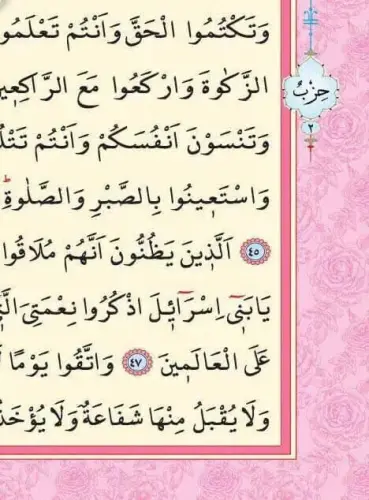 وَتَكْتُمُوا الْحَقَّ وَاَنْتُمْ
الزَّكٰوةَ وَارْكَعُوا مَعَ
وَتَنْسَوْنَ اَنْفُسَكُمْ وَاَنْتُمْ
وَاسْتَع۪ينُوا بِالصَّبْرِ وَالصَّلٰوةِ
٤٥ اَلَّذ۪ينَ يَظُنُّونَ اَنَّهُمْ مُلَاقُوا
يَابَن۪ٓى اِسْرَٓائ۪لَ اذْكُرُوا نِعْمَتِىَ
عَلَى الْعَالَم۪ينَ ٤٧ وَاتَّقُوا يَوْمًا
وَلَا يُقْبَلُ مِنْهَا شَفَاعَةٌ وَلَا
حِزْبُ
٢